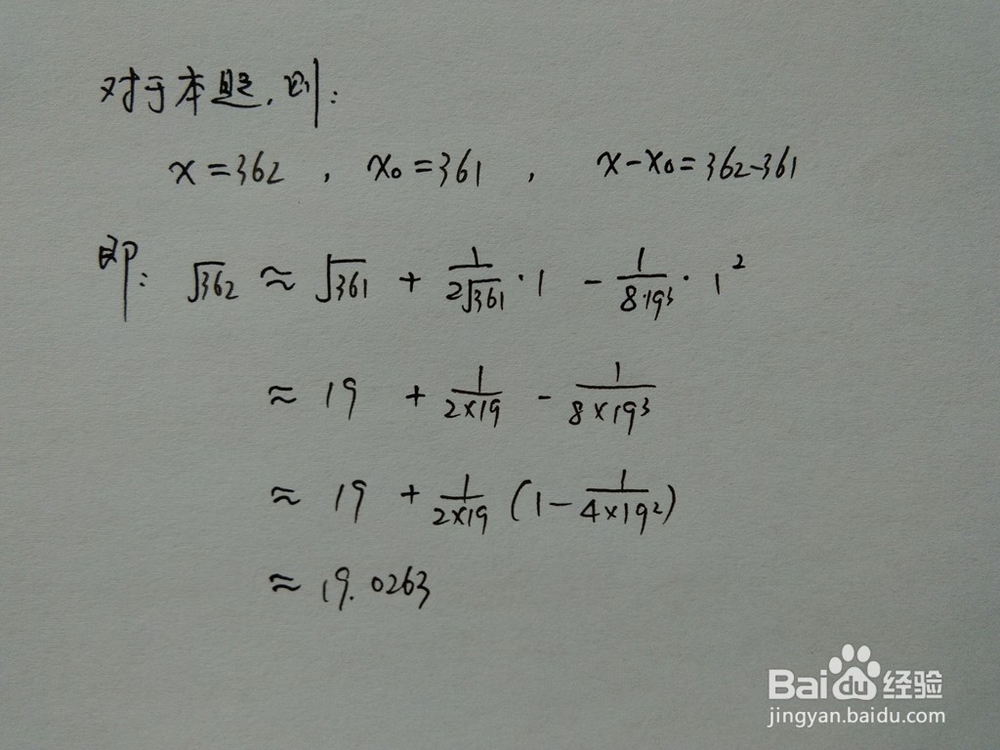 对于本题,则:
x=362 , x₀=361 , x-x₀=362-361
即: √362 ≈ √361 + 1/(2√361)·1 - 1/(8·19³)·1²
≈ 19 + 1/(2×19) - 1/(8×19³)
≈ 19 + 1/(2×19) (1 - 1/(4×19²))
≈ 19.0263
Baidu经验
jingyan.baidu.com